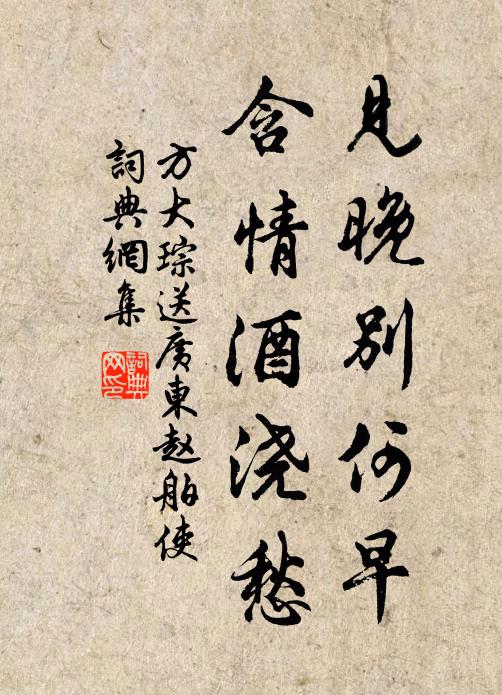 見晚别何早
含情酒浇愁
方大琮送廣東赵舶使
詞典網集
詞典
网印